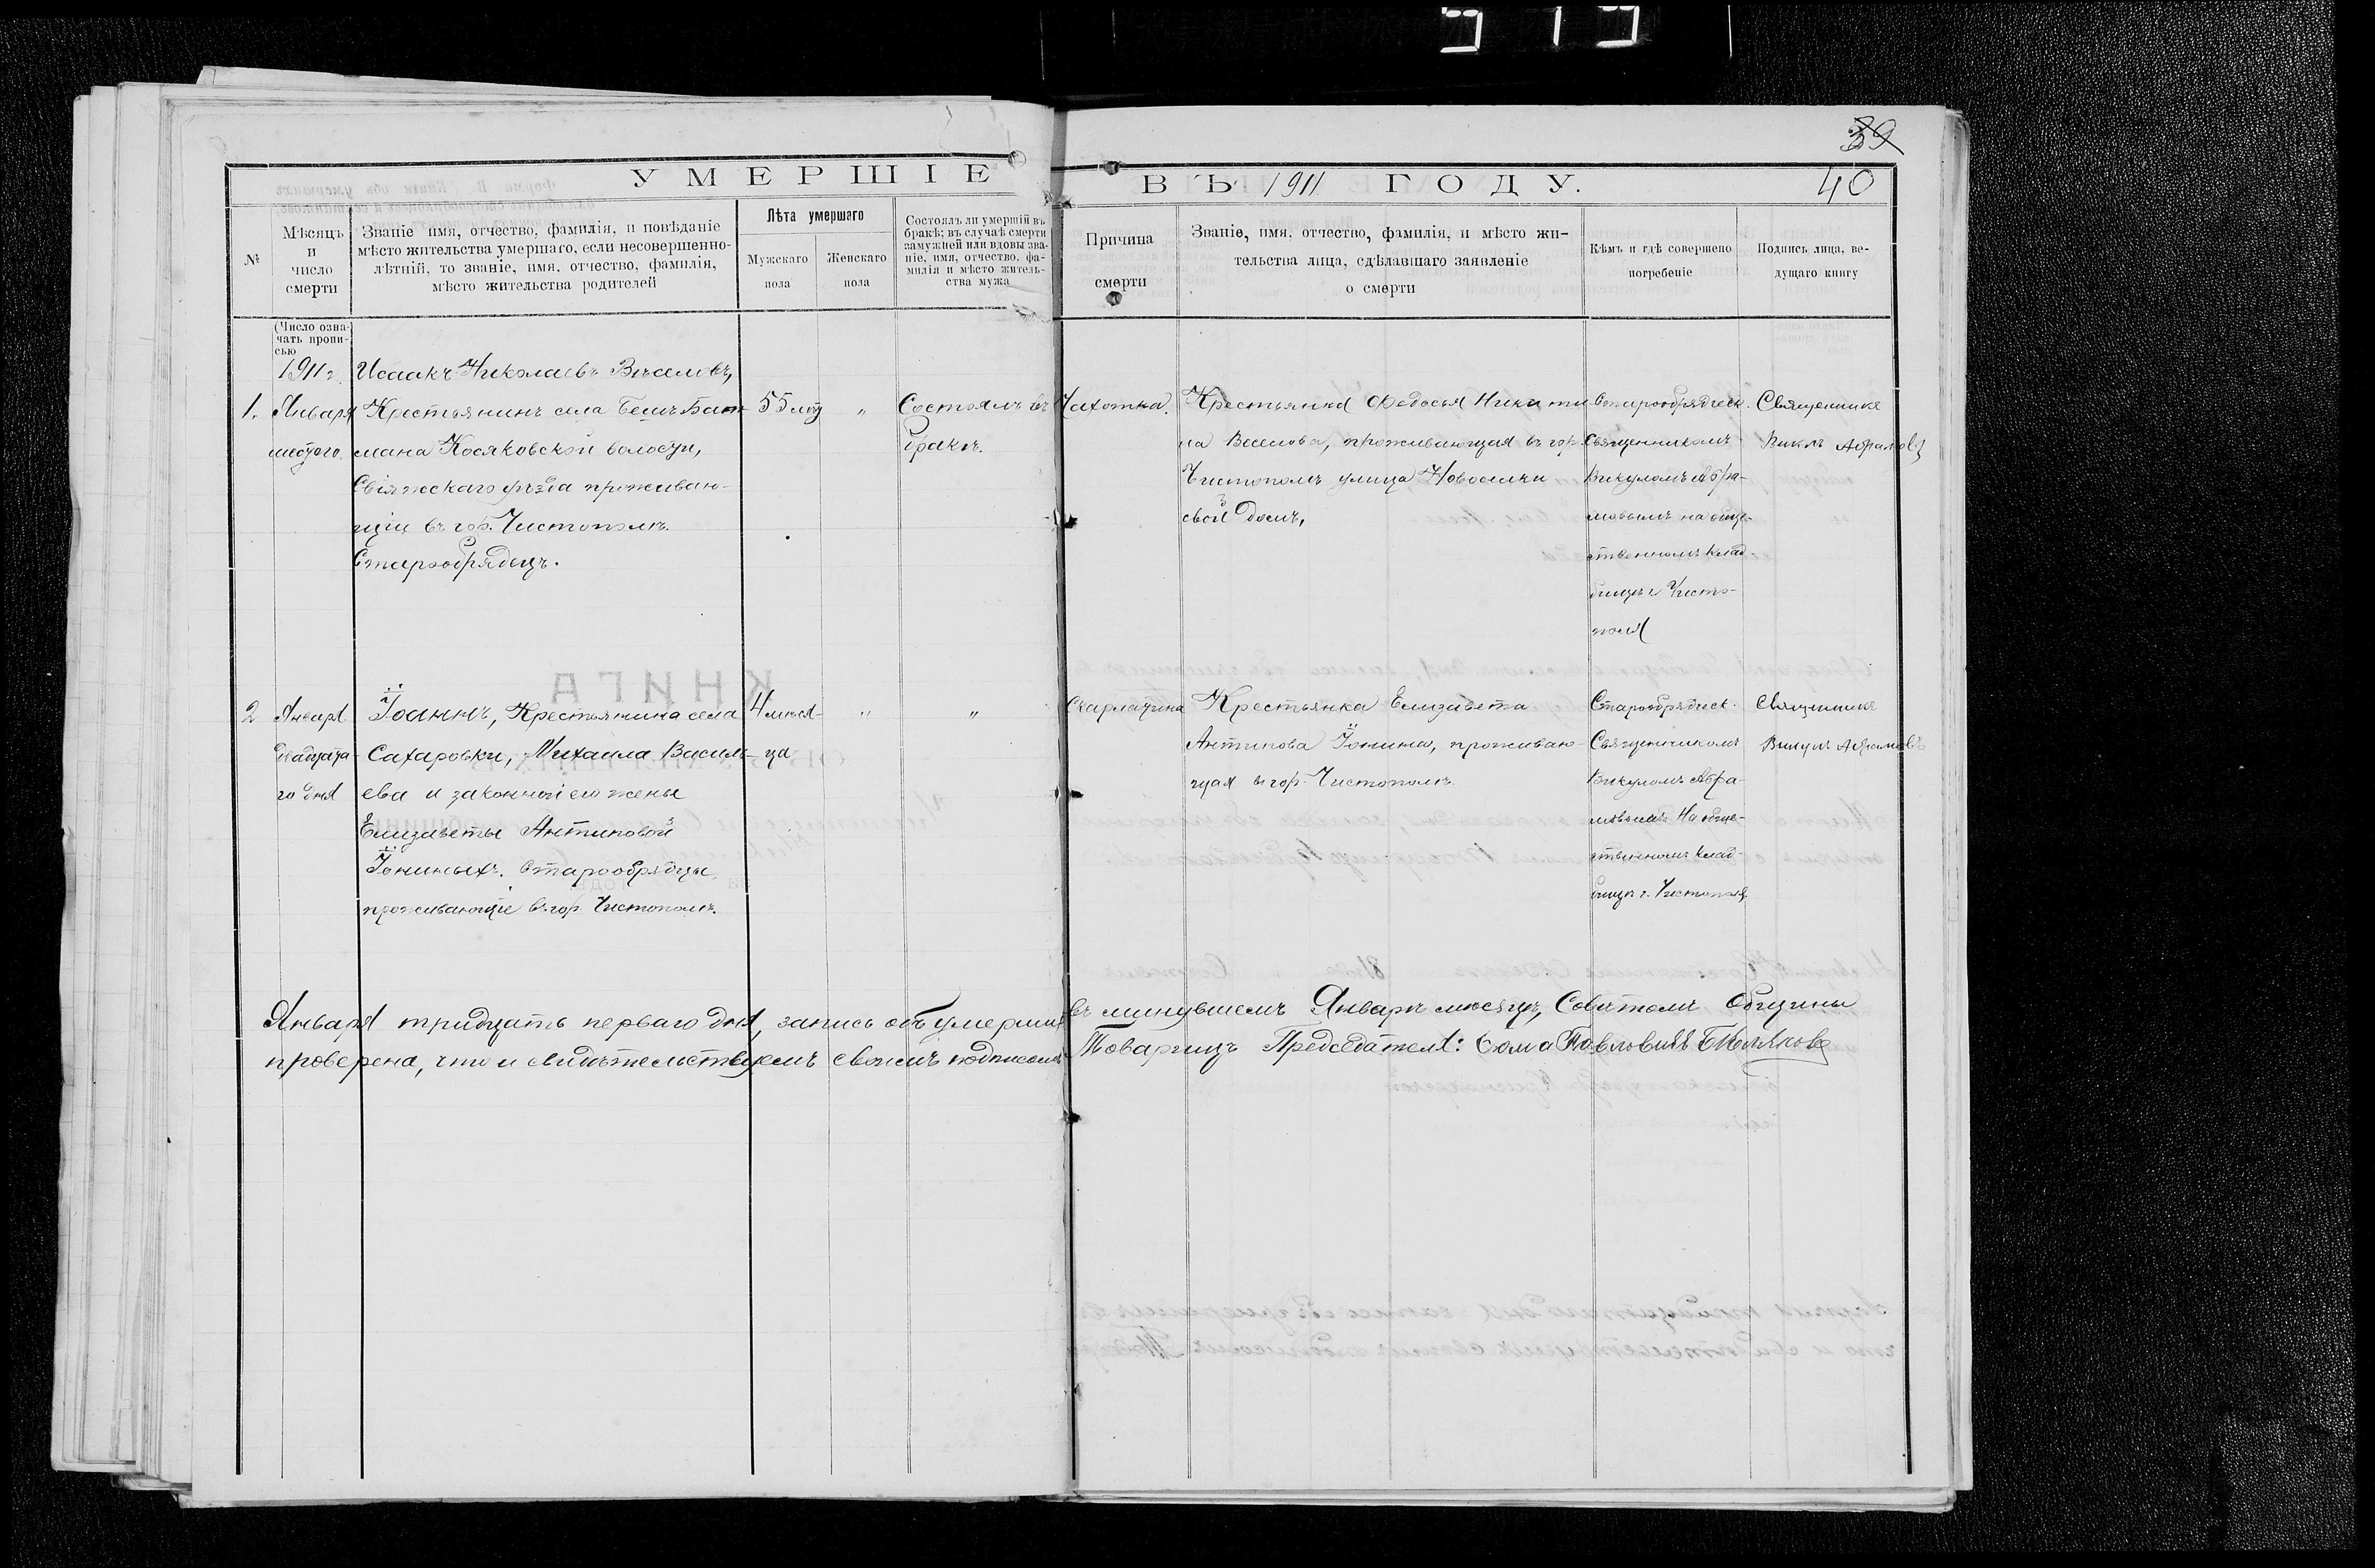 39
УМЕРШІЕ ВЪ 1911 ГОДУ. 40
№
Мѣсяцъ
и
число
смерти
Званіе имя, отчество, фамилія, и повѣданіе
мѣсто жительства умершаго, если несовершенно-
лѣтній, то званіе, имя, отчество, фамилія,
мѣсто жительства родителей
Лѣта умершаго
Мужскаго
пола
Женскаго
пола
Состоялъ ли умершій въ
бракѣ; въ случаѣ смерти
замужней или вдовы зва-
ніе, имя, отчество, фа-
милія и мѣсто житель-
ства мужа
Причина
смерти
Званіе, имя, отчество, фамилія, и мѣсто жи-
тельства лица, сдѣлавшаго заявленіе
о смерти
Кѣмъ и гдѣ совершено
погребеніе
Подпись лица, ве-
дущаго книгу
(Число озна-
чать пропи-
сью
1911 г.
1.
Января
шестого.
Исаакъ Николаевъ Веселовъ,
Крестьянинъ села Бешъ Бат-
мана Косяковской волости,
Свіяжскаго уѣзда проживаю-
щій въ гор. Чистополѣ.
Старообрядецъ.
55 лѣт
"
Состоялъ въ
бракѣ.
Чахотка.
Крестьянка Федосья Никити-
на Веселова, проживающая въ гор.
Чистополѣ улица Новоселки
свой домъ,
Старообрядческ.
Священникомъ
Викуломъ Абра-
мовымъ на обще-
ственномъ клад-
бищѣ г. Чисто-
поля
Священникъ
Викулъ Абрамовъ
2
Января
двадцата-
го дня
Іоаннъ, Крестьянина села
Сахаровки, Михаила Василь-
ева и законной его жены
Елизаветы Антиповой
Іониныхъ. Старообрядцы,
проживающіе въ гор. Чистополѣ.
4 мѣся-
ца
"
"
Скарлатина
Крестьянка Елизавета
Антипова Іонина, проживаю-
щая въ гор. Чистополѣ.
Старообрядческ.
Священникомъ
Викуломъ Абра-
мовымъ На обще-
ственномъ клад-
бищѣ г. Чистополя
Священникъ
Викулъ Абрамовъ
Января тридцать перваго дня, запись объ умершихъ въ минувшемъ Январѣ мѣсяцѣ, Совѣтомъ Общины
проверена, что и свидѣтельствуемъ своимъ подписомъ Товарищъ Председателя: